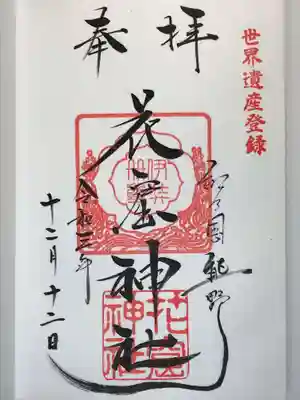 世界遺産登録
奉拝
紀乃國熊野
花窟神社
令和三年
十二月十二日
花窟神社